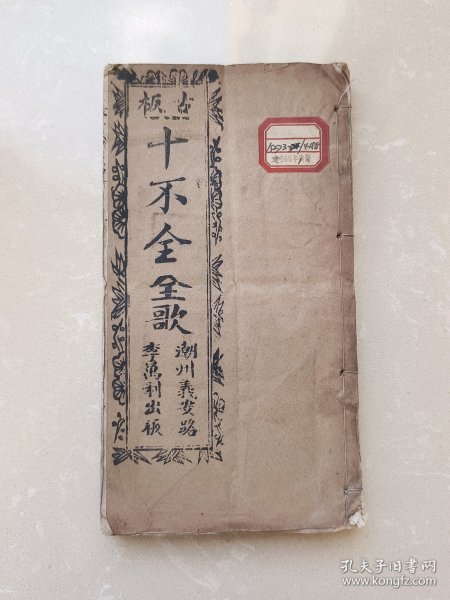 古板
十不全全歌
潮州義安路
李萬利出板
孔夫子旧书网
www.kongfz.com